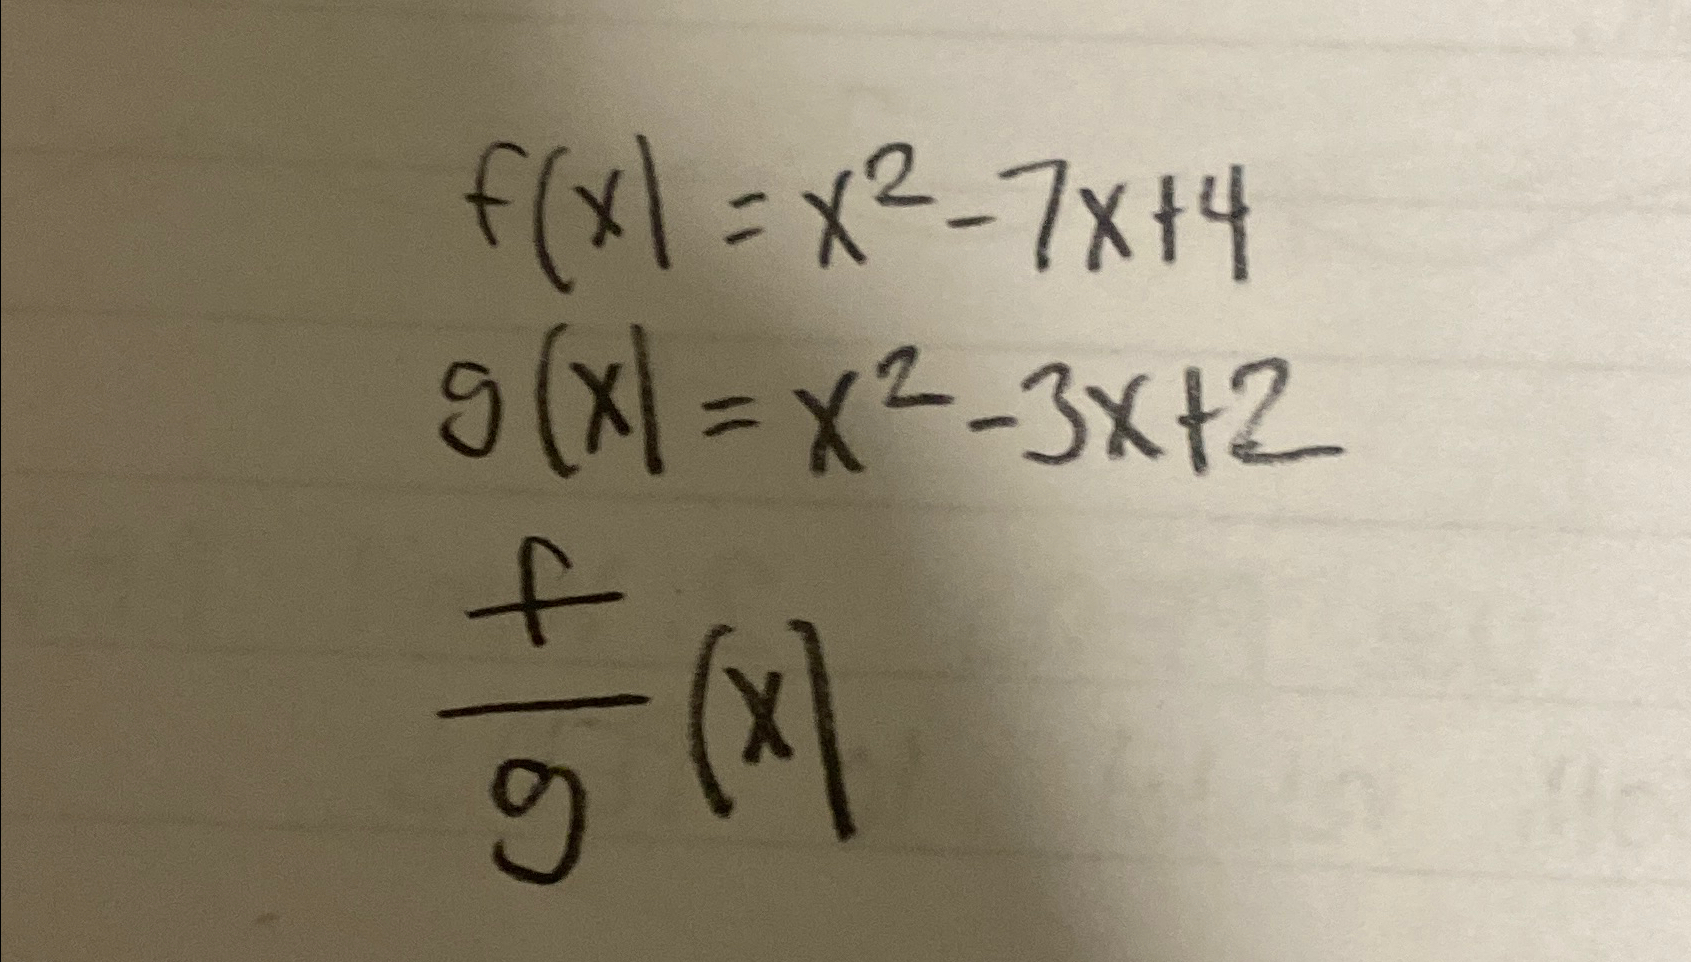 f(x) = x² - 7x + 4
g(x) = x² - 3x + 2
f/g (x)